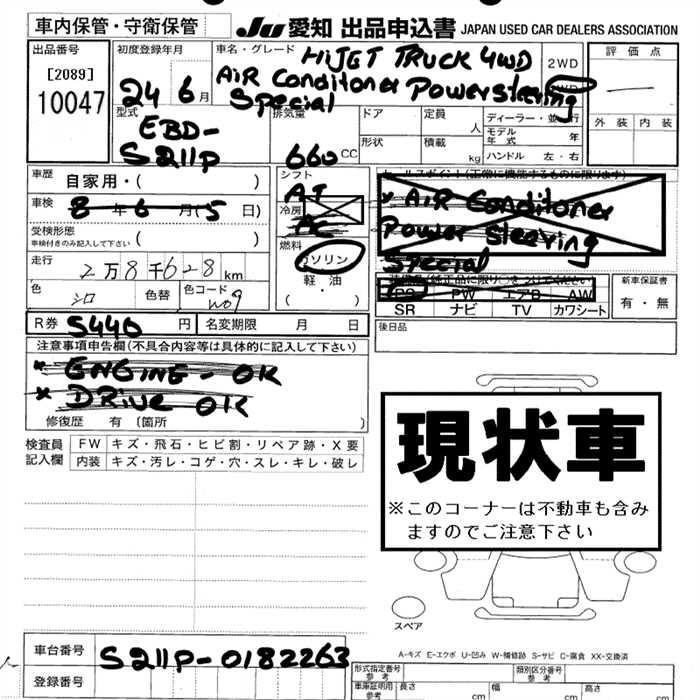 車内保管・守衛保管
JU 愛知 出品申込書 JAPAN USED CAR DEALERS ASSOCIATION
出品番号
[2089]
10047
初度登録年月
24 6月
車名・グレード
HiJET TRUCK 4WD
AiR Conditoner Powersteering
Special
2WD
4WD
評価点
外装 内装
型式
EBD-
S211P
排気量
660 CC
ドア
形状
定員
人
積載
kg
ディーラー・並行
モデル年式
年
ハンドル 左・右
車歴
自家用・( )
車検
8年6月(5日)
受検形態
車検付きのみ記入して下さい
( )
走行
2万8千628km
色
シロ
色替
色コード
W09
シフト
AT
冷房
AC
燃料
ガソリン
軽・油
( )
セールスポイント(正常に機能するものに限ります)
* AiR Conditoner
Power Steering
Special
PS PW エアB AW
SR ナビ TV カワシート
新車保証書
有・無
R券 5440円
名変期限 月 日
後日品
注意事項申告欄(不具合内容等は具体的に記入して下さい)
* ENGINE - OK
* DRive OK
修復歴 有 〔箇所 〕
検査員
記入欄
FW キズ・飛石・ヒビ割・リペア跡・X要
内装 キズ・汚レ・コゲ・穴・スレ・キレ・破レ
現状車
※このコーナーは不動車も含み
ますのでご注意下さい
スペア
A-キズ E-エクボ U-凹み W-補修跡 S-サビ C-腐食 XX-交換済
車台番号
S211P-0182263
登録番号
形式指定番号
参考
類別区分番号
参考
車庫証明用
参考
長さ cm
幅 cm
高さ cm